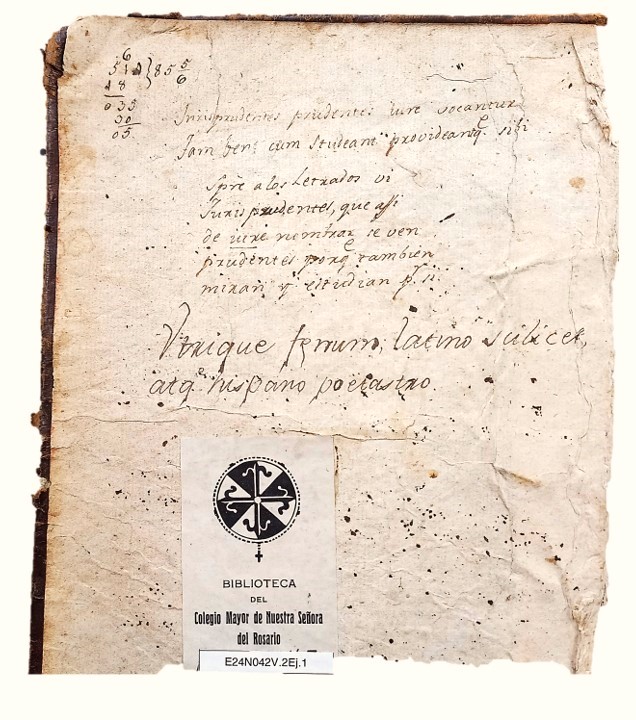 6
510 } 85 5/6
48
035
30
05
Jurisprudentes prudentes iure vocantur
Jam cum studeant provideantq̃ sibi
Spre a los Letrados vi
Jurisprudentes, que assi
de iure nombrar se ven
prudentes porq̃ tambien
miran y estudian pr. si.
Vtrique ferrum, latino scilicet,
atq̃ hispano poetastro.
BIBLIOTECA
DEL
Colegio Mayor de Nuestra Señora
del Rosario
E24N042V.2Ej.1